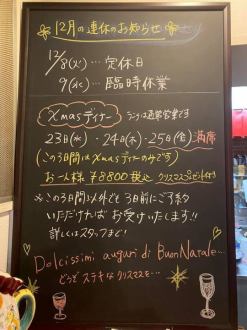 12月の連休のお知らせ
12/8(火)… 定休日
9(水)… 臨時休業
Xmasディナー ランチは通常営業です
23日(水)・24日(木)・25日(金)満席
(この3日間はXmasディナーのみです)
お一人様 ¥8800税込 クリスマスプレゼント付
※この3日間以外でも3日前にご予約
いただければお受けいたします!!
詳しくはスタッフまで!
Dolcissimi auguri di Buon Natale…
どうぞステキなクリスマスを…